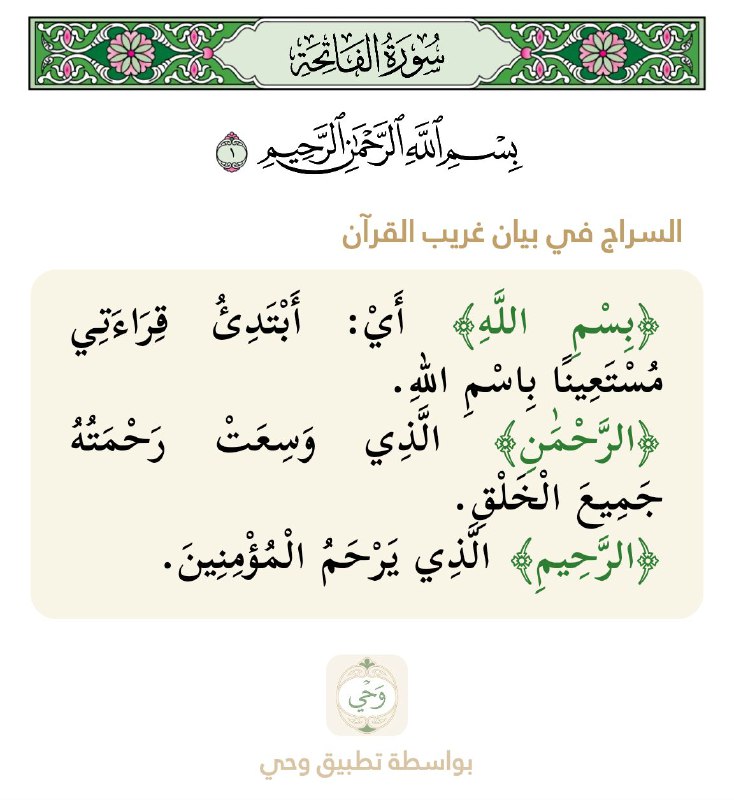 سُورَةُ الفَاتِحَةِ
بِسْمِ ٱللَّهِ ٱلرَّحْمَٰنِ ٱلرَّحِيمِ ١
السراج في بيان غريب القرآن
﴿بِسْمِ اللَّهِ﴾ أَيْ: أَبْتَدِئُ قِرَاءَتِي
مُسْتَعِينًا بِاسْمِ اللهِ.
﴿الرَّحْمَٰنِ﴾ الَّذِي وَسِعَتْ رَحْمَتُهُ
جَمِيعَ الْخَلْقِ.
﴿الرَّحِيمِ﴾ الَّذِي يَرْحَمُ الْمُؤْمِنِينَ.
وَحْي
بواسطة تطبيق وحي